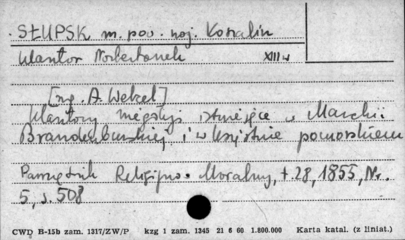 SŁUPSK m. pow. woj. Koszalin
Klasztor Norbertanek XIII w
[ng. A. Wetzel]
Klasztory męskie istniejące w Marchii
Brandenburskiej i w księstwie pomorskiem
Pamiętnik Religijno-Moralny, t 28, 1855, Nr.
5, s. 508
CWD B-15b zam. 1317/ZW/P kzg 1 zam. 1345 21 6 66 1.800.000 Karta katal. (z liniat.)